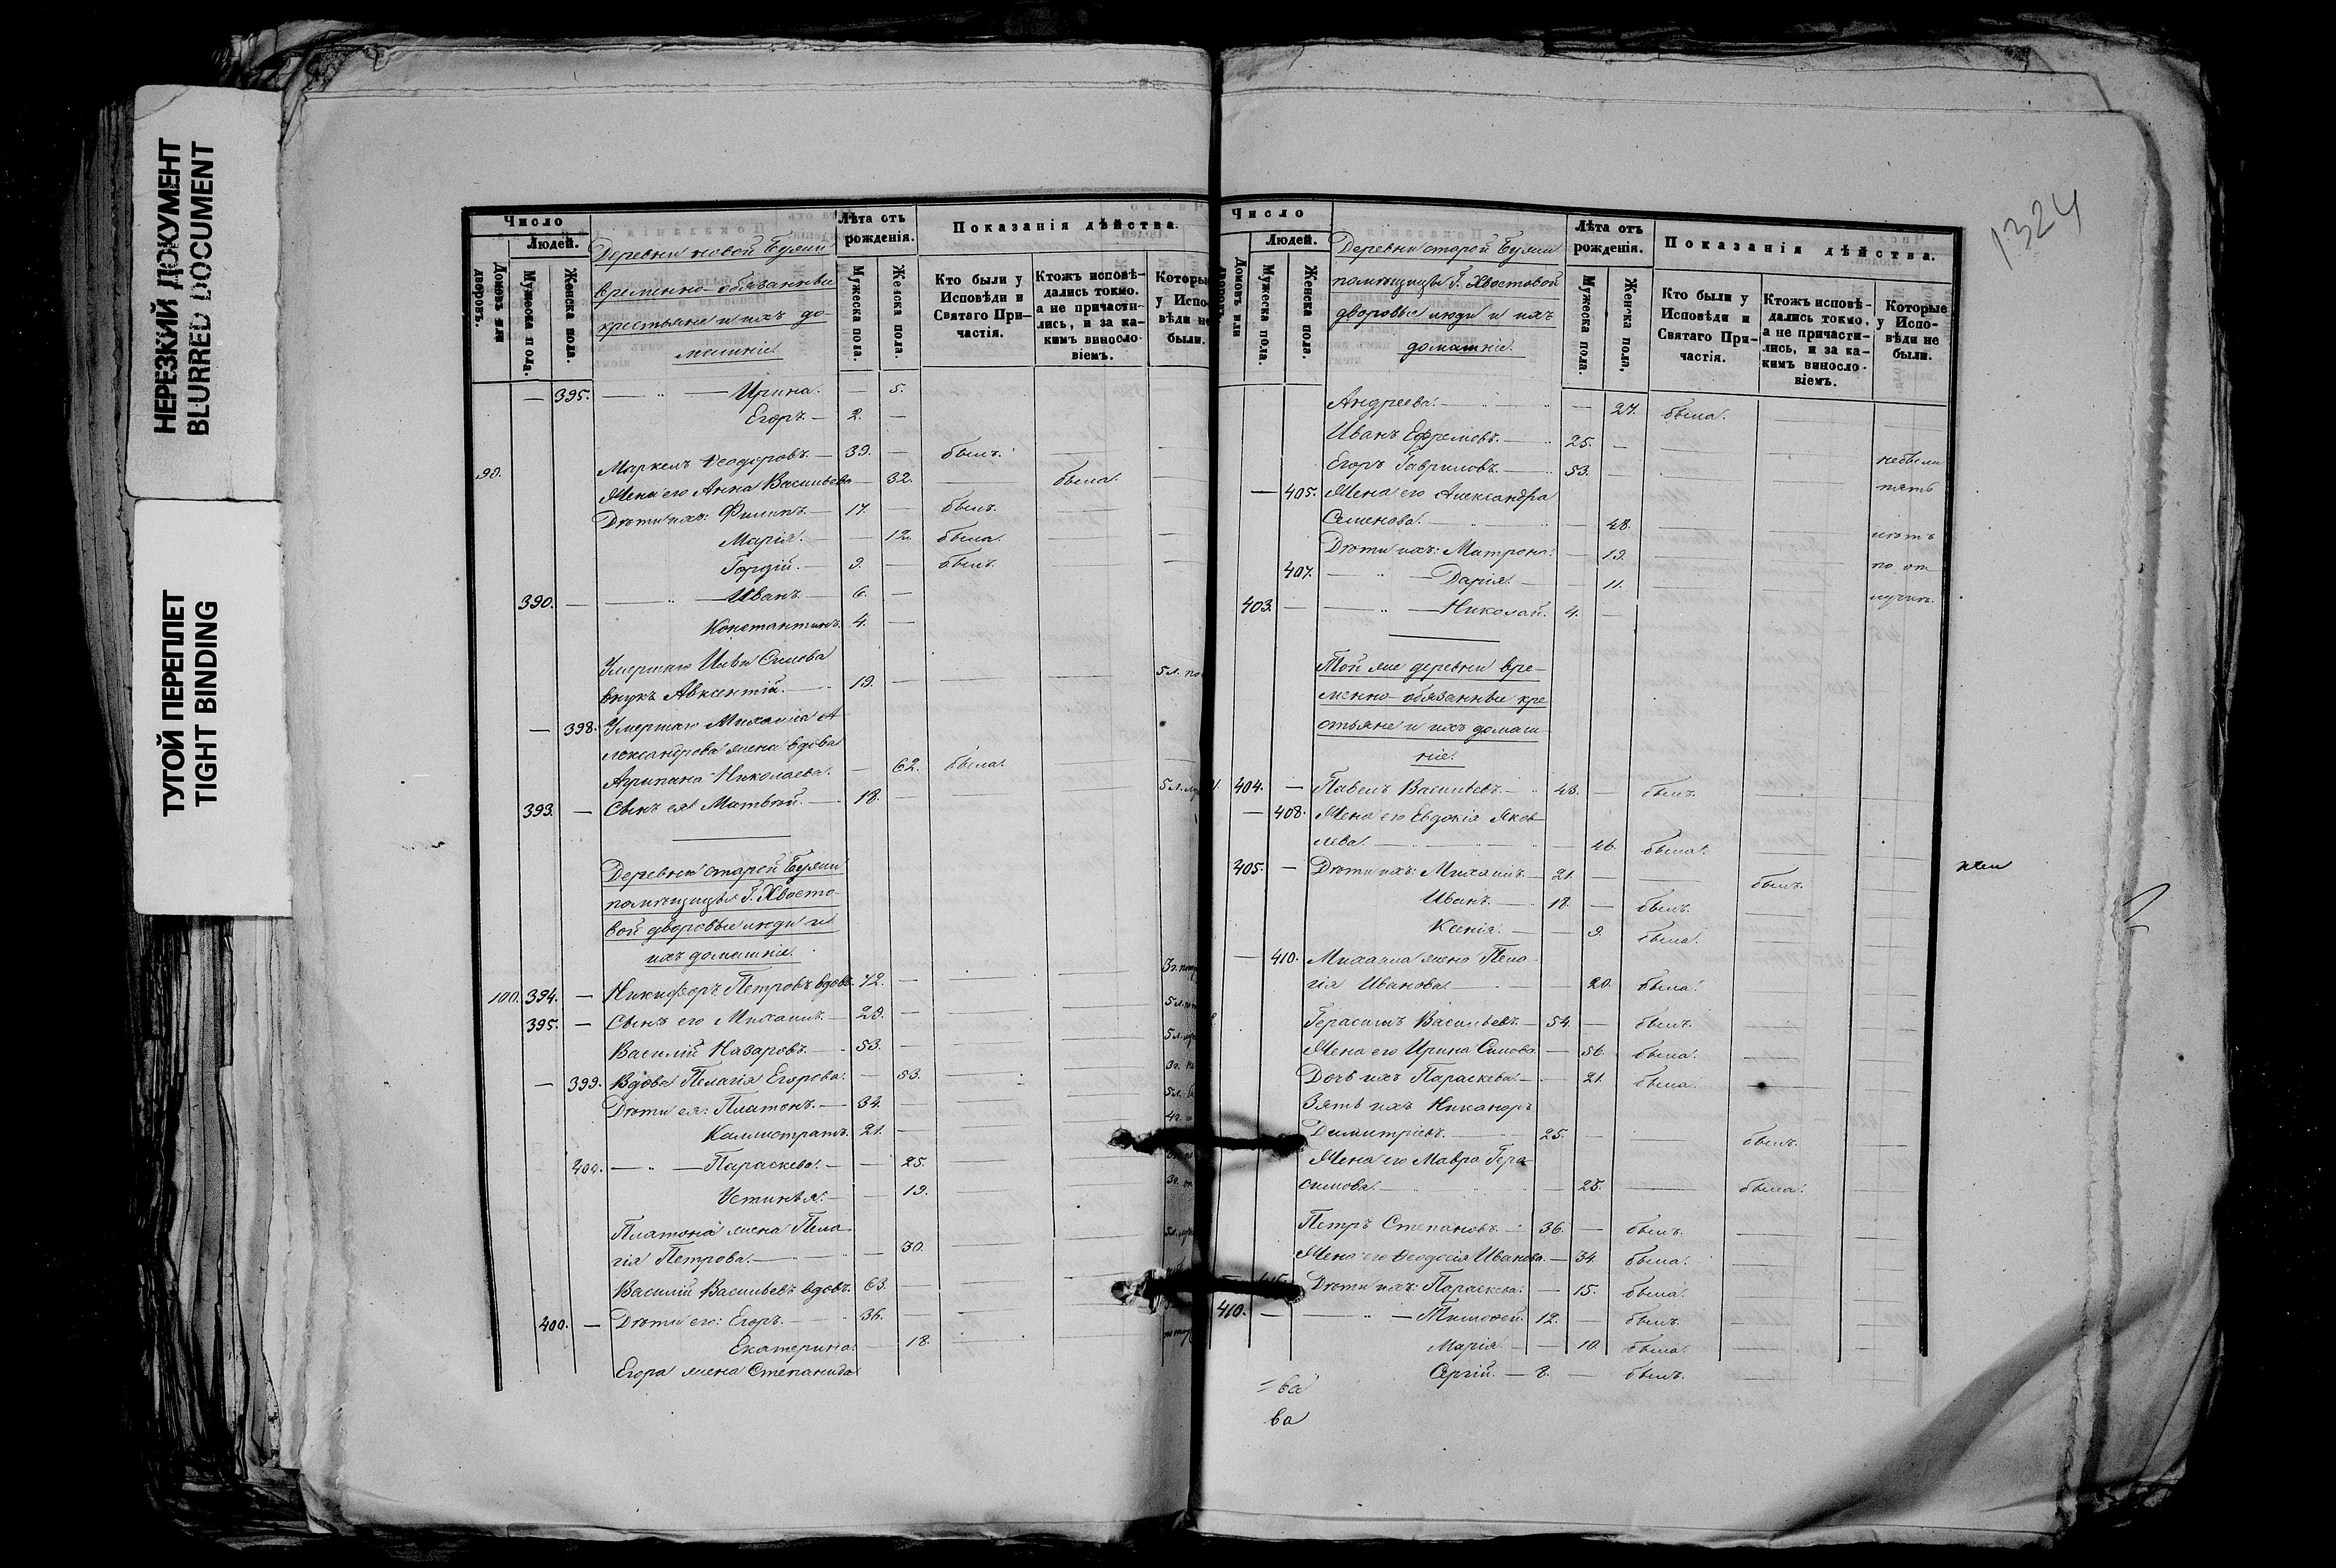 НЕРЕЗКИЙ ДОКУМЕНТ
BLURRED DOCUMENT
ТУГОЙ ПЕРЕПЛЕТ
TIGHT BINDING
Число
Людей.
Домовъ или дворовъ.
Мужеска пола.
Женска пола.
Деревни новой
временно-обязанные
крестьяне и ихъ до-
машніе.
Лѣта отъ рожденія.
Мужеска пола.
Женска пола.
Показанія дѣйства.
Кто были у Исповѣди и Святаго При-частія.
Ктожъ исповѣ-дались токмо, а не причасти-лись, и за ка-кимъ винosло-віемъ.
Которы у Испо-вѣди не были.
— 395. — „ — Ирина. — 5.
Егоръ. — 2. —
Маркелъ Ѳеодоровъ. — 39. — былъ.
Жена его Анна Васильева — 32. — была.
Дѣти ихъ: Филипъ. — 17. — былъ.
Марія. — 12. была.
Гордій. — 9. — былъ.
390. — — „ — Иванъ. — 6. —
Константинъ. 4. —
Умершаго Силова
внукъ Авксентій. — 19. — 5 л. по
— 398. Умершаго Михаила А-
лександрова жена вдова
Агрипина Николаева. — 62. была.
393. — Сынъ ея Матвѣй. — 18. 5 л.
Деревни старой
помѣщицы Г. Хвосто-
вой дворовые люди и
ихъ домашніе.
100. 394. — Никифоръ Петровъ вдовъ. 72. —
395. — Сынъ его Михаилъ. — 29. —
Василій Назаровъ. — 53. —
— 399. Вдова Пелагія Егорова. — 53.
Дѣти ея: Платонъ. — 34. —
Каллистратъ. 21. —
400. — „ — Параскева. — 25.
Устинья. — 19.
Платона жена Пела-
гія Петрова. — 30.
Василій Васильевъ вдовъ. 63. —
400. — Дѣти его: Егоръ. — 36. —
Екатерина. — 18.
Егора жена Степанида
1324
Число
Людей.
Домовъ или
Мужеска пола.
Женска пола.
Деревни старой
помѣщицы Г. Хвостовой
дворовые люди и ихъ
домашніе.
Лѣта отъ рожденія.
Мужеска пола.
Женска пола,
Показанія дѣйства.
Кто были у Исповѣди и Святаго При-частія.
Ктожъ исповѣ-дались токмо, а не причасти-лись, и за ка-кимъ винosло-віемъ.
Которые у Испо-вѣди не были.
Андреева. — 27. была.
Иванъ Ефремовъ. — 25. —
Егоръ Гавриловъ. — 53. — небыли
— 405. Жена его Александра пять
Семенова. — 48. лѣтъ
Дѣти ихъ: Матрона. — 19. по от
407. — „ — Дарія. — 11. лучкѣ.
403. — — „ — Николай. 4. —
Той же деревни вре-
менно-обязанные кре
стьяне и ихъ домаш-
ніе.
404. — Павелъ Васильевъ. — 43. — былъ.
— 408. Жена его Евдокія Яков-
лева. — 46. была.
405. — Дѣти ихъ: Михаилъ. — 21. — былъ.
Иванъ. — 18. — былъ.
Ксенія. — 9. была.
— 410. Михаила жена Пела-
гія Иванова. — 20. была.
Герасимъ Васильевъ. — 54. — былъ.
Жена его Ирина Силова. — 56. была.
Дочь ихъ Параскева. — 21. была.
Зять ихъ Никаноръ
Димитріевъ. — 25. — былъ.
Жена его Мавра Гера-
симова. — 25. — была.
Петръ Степановъ. — 36. — былъ.
Жена его Ѳеодосія Иванова. — 34. была.
Дѣти ихъ: Параскева. — 15. была.
410. — — „ — Тимоѳей. 12. — былъ.
Марія. — 10. была.
Сергій. — 8. — былъ.
ва
ва